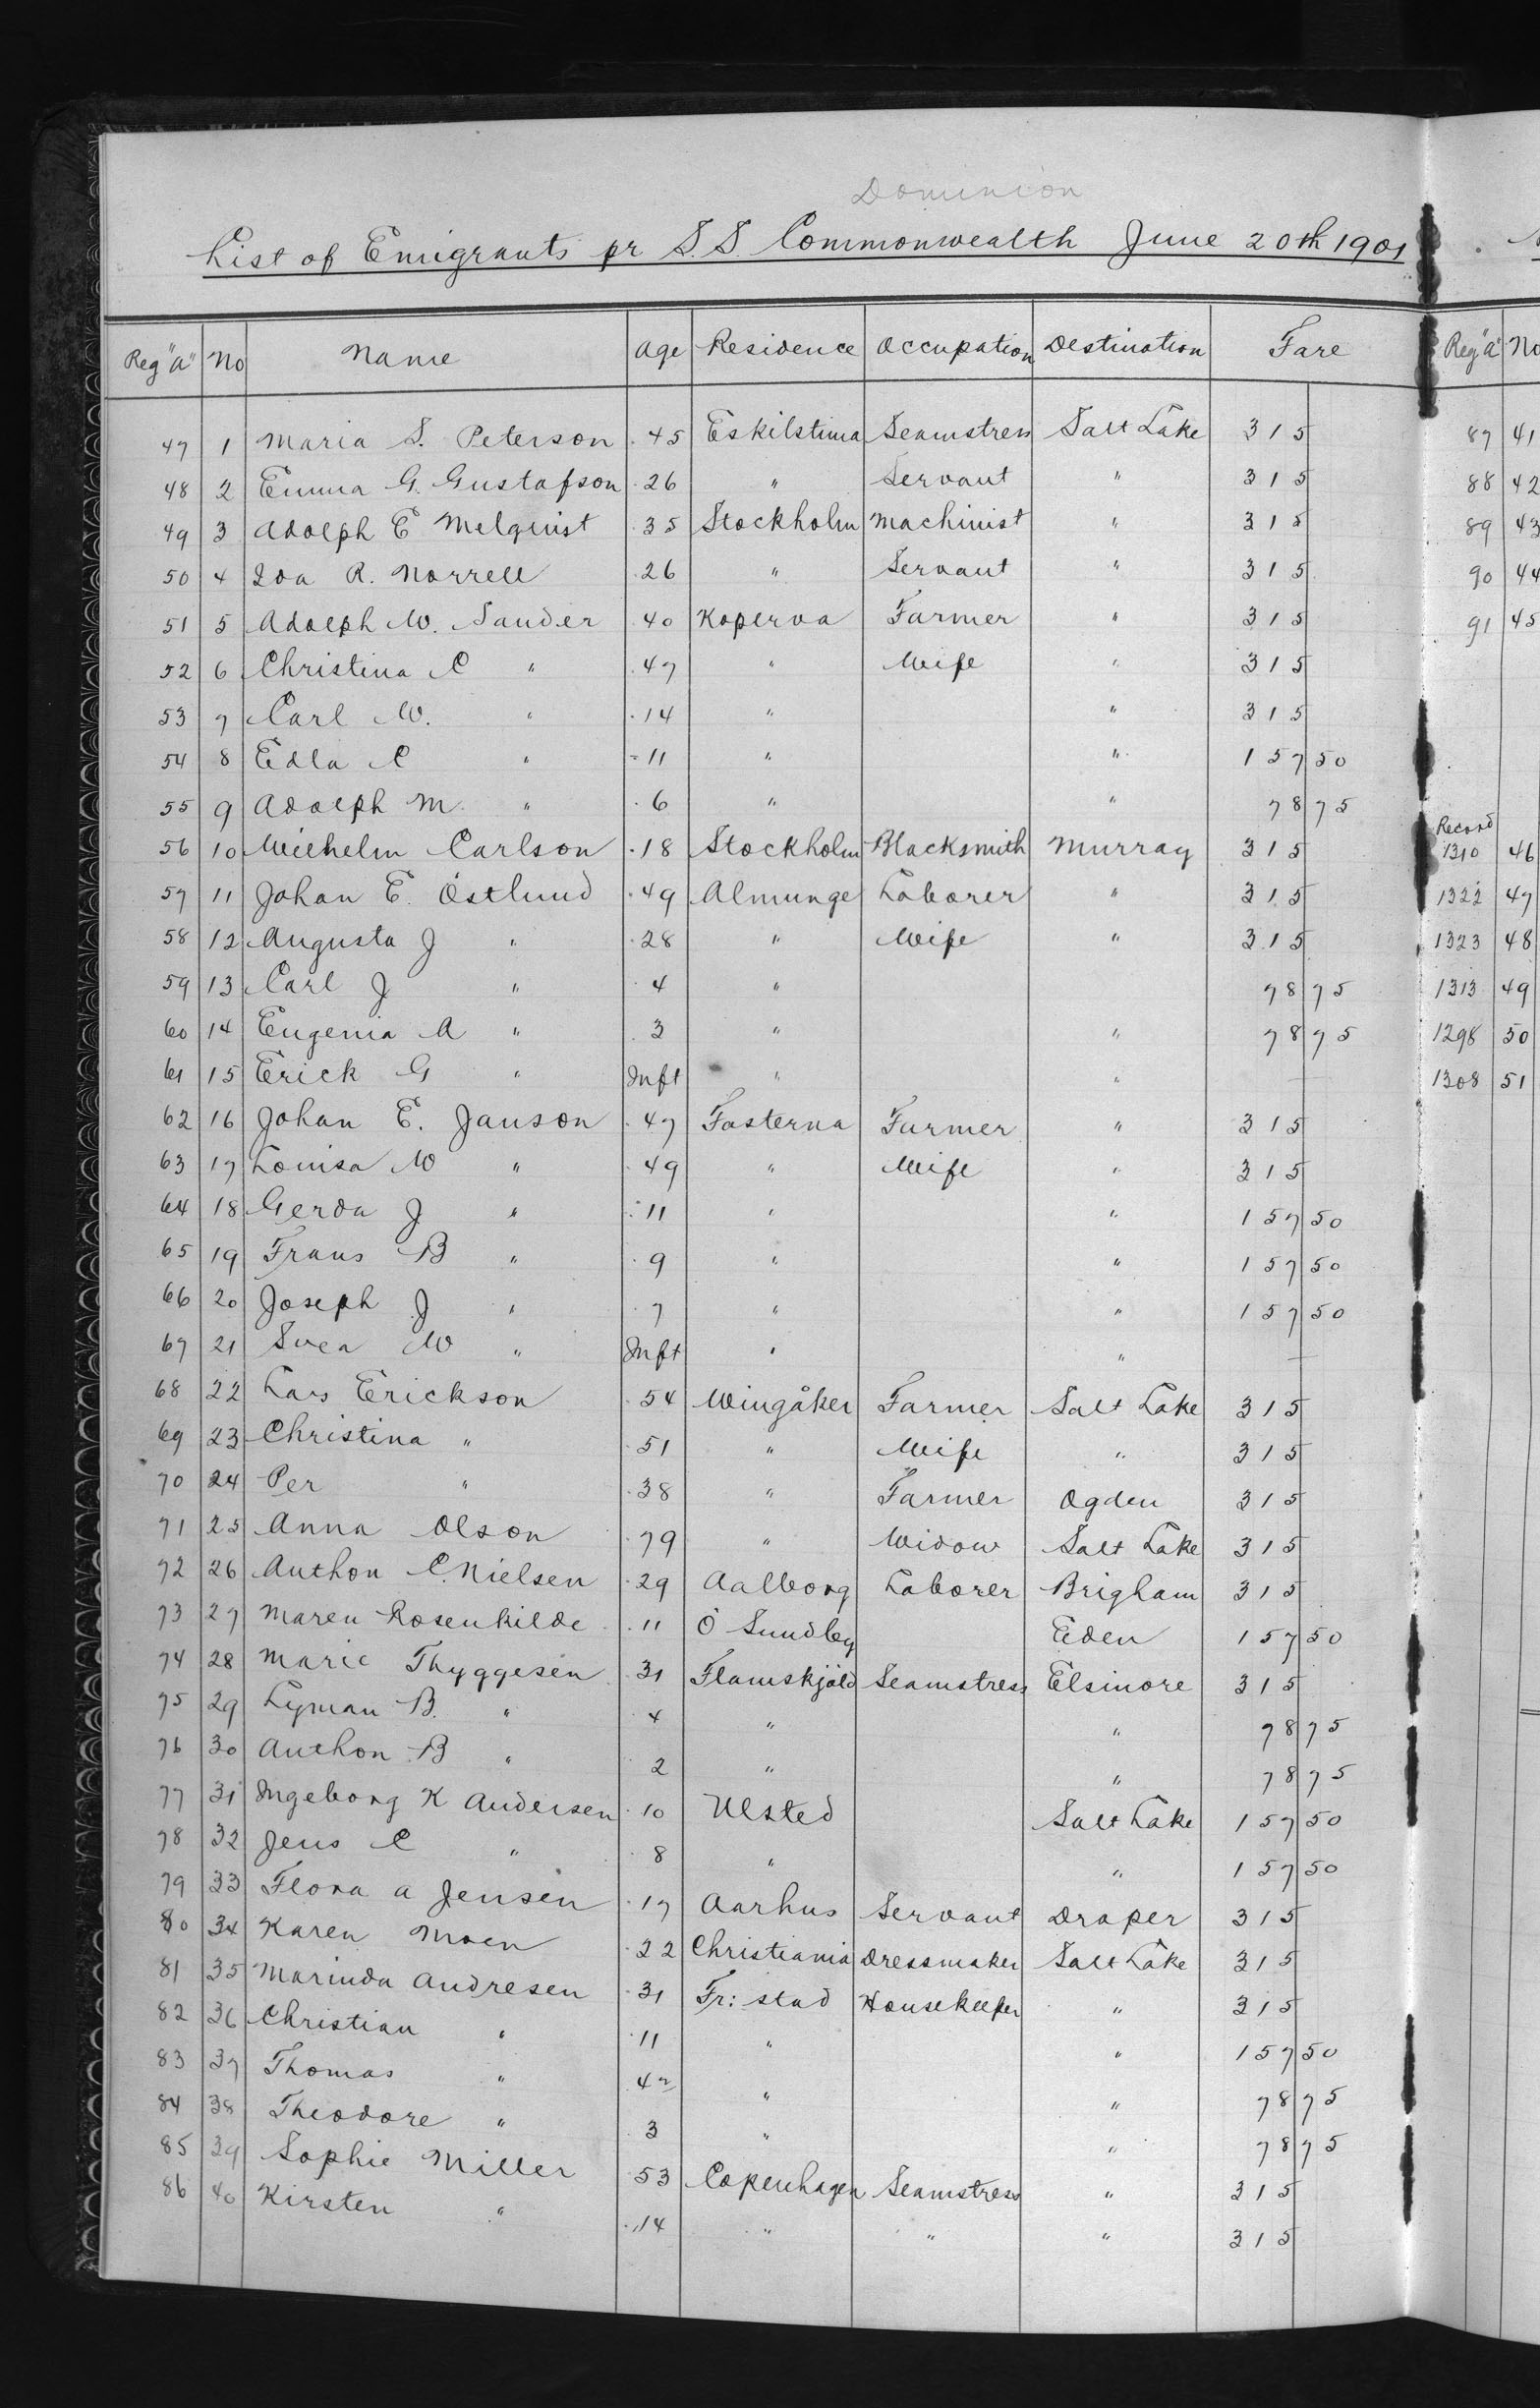 Dominion
List of Emigrants pr S.S. Commonwealth June 20th 1901
Reg "a" No Name Age Residence Occupation Destination Fare
47 1 Maria S. Peterson 45 Eskilstuna Seamstress Salt Lake 315
48 2 Emma G. Gustafson 26 " Servant " 315
49 3 Adolph E Melquist 35 Stockholm Machinist " 315
50 4 Ida R. Norrell 26 " Servant " 315
51 5 Adolph W. Sander 40 Koperva Farmer " 315
52 6 Christina C " 47 " Wife " 315
53 7 Carl W. " 14 " " 315
54 8 Edla C " 11 " " 157 50
55 9 Adolph M. " 6 " " 78 75
56 10 Wilhelm Carlson 18 Stockholm Blacksmith Murray 315
57 11 Johan E. Östlund 49 Almunge Laborer " 315
58 12 Augusta J " 28 " Wife " 315
59 13 Carl J " 4 " 78 75
60 14 Eugenia A " 3 " " 78 75
61 15 Erick G " Inft " " —
62 16 Johan E. Janson 47 Fasterna Farmer " 315
63 17 Louisa W " 49 " Wife " 315
64 18 Gerda J " 11 " " 157 50
65 19 Frans B " 9 " " 157 50
66 20 Joseph J " 7 " " 157 50
67 21 Svea W " Inft " " —
68 22 Lars Erickson 54 Wingåker Farmer Salt Lake 315
69 23 Christina " 51 " Wife " 315
70 24 Per " 38 " Farmer Ogden 315
71 25 Anna Olson 79 " Widow Salt Lake 315
72 26 Anthon C. Nielsen 29 Aalborg Laborer Brigham 315
73 27 Maren Rosenkilde 11 Ö Sundby Eden 157 50
74 28 Marie Thyggesen 31 Flamskjöld Seamstress Elsinore 315
75 29 Lyman B. " 4 " " 78 75
76 30 Anthon B " 2 " " 78 75
77 31 Ingeborg K Andersen 10 Ulsted Salt Lake 157 50
78 32 Jens C " 8 " " 157 50
79 33 Flora A Jensen 17 Aarhus Servant Draper 315
80 34 Karen Moen 22 Christiania Dressmaker Salt Lake 315
81 35 Marinda Andresen 31 Fr: stad Housekeeper " 315
82 36 Christian " 11 " " 157 50
83 37 Thomas " 4 " " 78 75
84 38 Theodore " 3 " " 78 75
85 39 Sophie Miller 53 Copenhagen Seamstress " 315
86 40 Kirsten " 14 " " " 315
Reg "a" No
87 41
88 42
89 43
90 44
91 45
Record
1310 46
1322 47
1323 48
1313 49
1298 50
1308 51